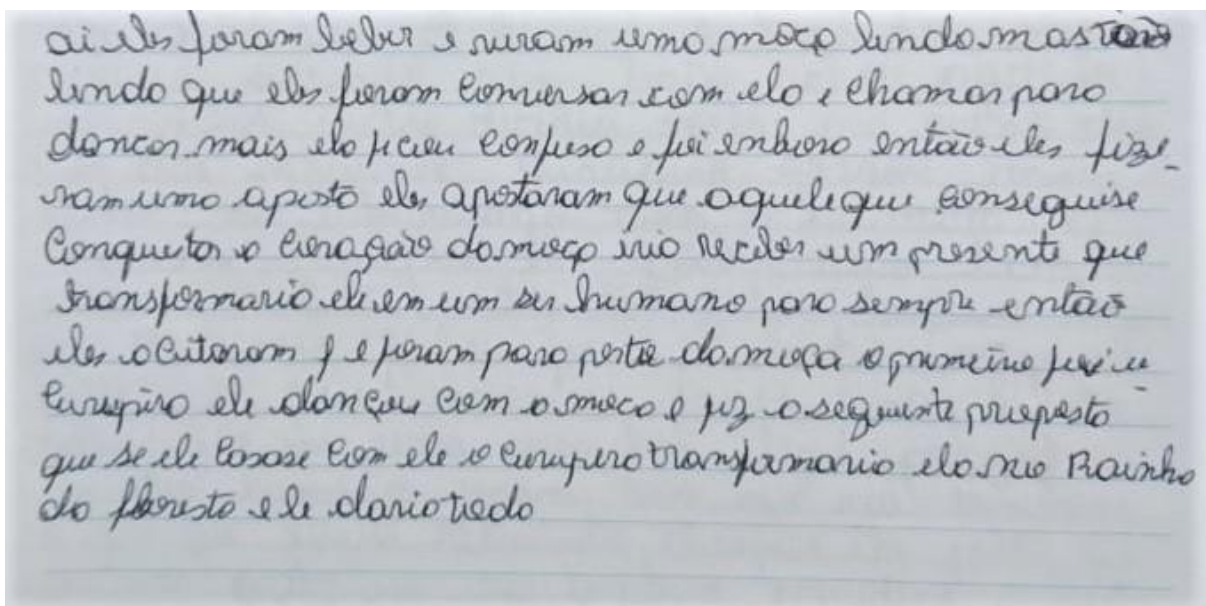 ai eles foram beber e viram uma moça linda mas tão
linda que eles foram conversar com ela e chamar para
dançar mais ela ficou confusa e foi enbora então eles fize-
ram uma aposta eles apostaram que aquele que conseguise
Conquistar o coração da moça iria receber um presente que
transformaria ele em um ser humano para sempre então
eles aceitaram e foram para perto da moça o primeiro foi o
curupira ele dançou com a moça e fez a seguinte proposta
que se ela casase com ele o curupira transformaria ela na Rainha
da floresta e le daria tudo